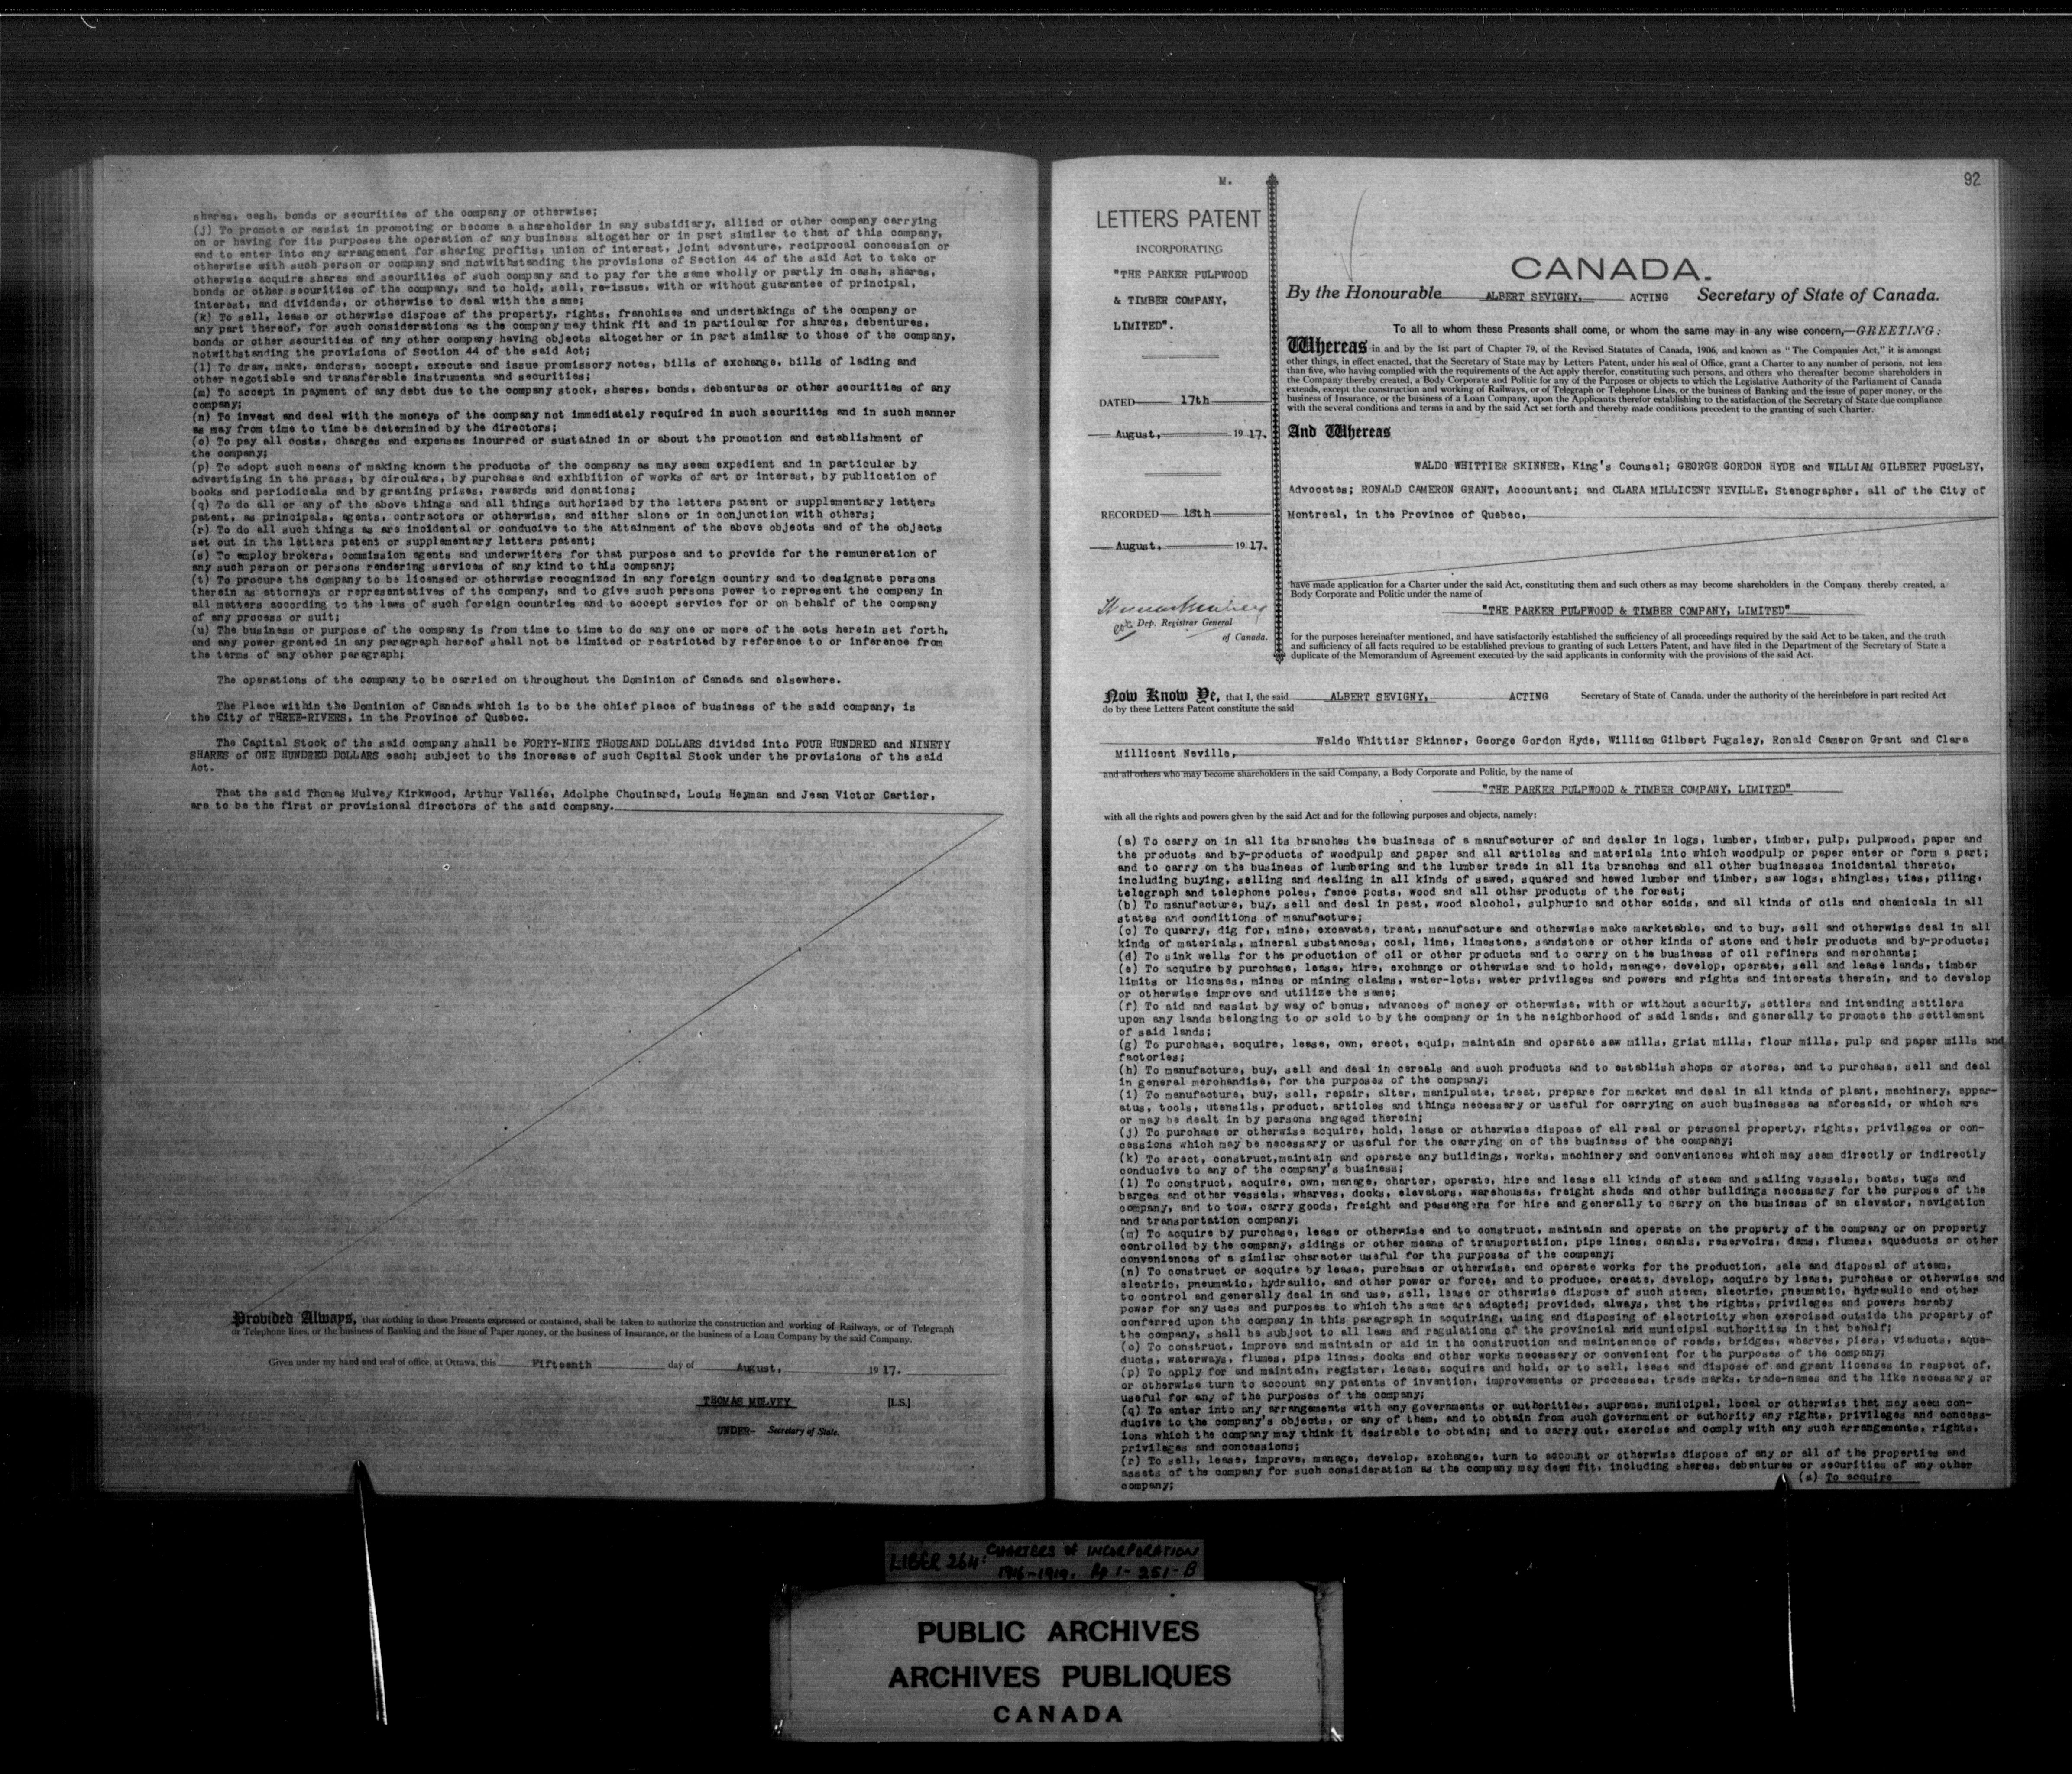 shares, cash, bonds or securities of the company or otherwise;
(j) To promote or assist in promoting or become a shareholder in any subsidiary, allied or other company carrying
on or having for its purposes the operation of any business altogether or in part similar to that of this company,
and to enter into any arrangement for sharing profits, union of interest, joint adventure, reciprocal concession or
otherwise with such person or company and notwithstanding the provisions of Section 44 of the said Act to take or
otherwise acquire shares and securities of such company and to pay for the same wholly or partly in cash, shares,
bonds or other securities of the company, and to hold, sell, re-issue, with or without guarantee of principal,
interest, and dividends, or otherwise to deal with the same;
(k) To sell, lease or otherwise dispose of the property, rights, franchises and undertakings of the company or
any part thereof, for such considerations as the company may think fit and in particular for shares, debentures,
bonds or other securities of any other company having objects altogether or in part similar to those of the company,
notwithstanding the provisions of Section 44 of the said Act;
(l) To draw, make, endorse, accept, execute and issue promissory notes, bills of exchange, bills of lading and
other negotiable and transferable instruments and securities;
(m) To accept in payment of any debt due to the company stock, shares, bonds, debentures or other securities of any
company;
(n) To invest and deal with the moneys of the company not immediately required in such securities and in such manner
as may from time to time be determined by the directors;
(o) To pay all costs, charges and expenses incurred or sustained in or about the promotion and establishment of
the company;
(p) To adopt such means of making known the products of the company as may seem expedient and in particular by
advertising in the press, by circulars, by purchase and exhibition of works of art or interest, by publication of
books and periodicals and by granting prizes, rewards and donations;
(q) To do all or any of the above things and all things authorized by the letters patent or supplementary letters
patent, as principals, agents, contractors or otherwise, and either alone or in conjunction with others;
(r) To do all such things as are incidental or conducive to the attainment of the above objects and of the objects
set out in the letters patent or supplementary letters patent;
(s) To employ brokers, commission agents and underwriters for that purpose and to provide for the remuneration of
any such person or persons rendering services of any kind to this company;
(t) To procure the company to be licensed or otherwise recognized in any foreign country and to designate persons
therein as attorneys or representatives of the company, and to give such persons power to represent the company in
all matters according to the laws of such foreign countries and to accept service for or on behalf of the company
of any process or suit;
(u) The business or purpose of the company is from time to time to do any one or more of the acts herein set forth,
and any power granted in any paragraph hereof shall not be limited or restricted by reference to or inference from
the terms of any other paragraph;
The operations of the company to be carried on throughout the Dominion of Canada and elsewhere.
The Place within the Dominion of Canada which is to be the chief place of business of the said company, is
the City of THREE-RIVERS, in the Province of Quebec.
The Capital Stock of the said company shall be FORTY-NINE THOUSAND DOLLARS divided into FOUR HUNDRED and NINETY
SHARES of ONE HUNDRED DOLLARS each; subject to the increase of such Capital Stock under the provisions of the said
Act.
That the said Thomas Mulvey Kirkwood, Arthur Vallée, Adolphe Chouinard, Louis Heyman and Jean Victor Cartier,
are to be the first or provisional directors of the said company.
Provided Always, that nothing in these Presents expressed or contained, shall be taken to authorize the construction and working of Railways, or of Telegraph
or Telephone lines, or the business of Banking and the issue of Paper money, or the business of Insurance, or the business of a Loan Company by the said Company.
Given under my hand and seal of office, at Ottawa, this Fifteenth day of August, 1917.
THOMAS MULVEY [L.S.]
UNDER- Secretary of State.
M.
92
LETTERS PATENT
INCORPORATING
"THE PARKER PULPWOOD
& TIMBER COMPANY,
LIMITED".
DATED 17th
August, 1917.
RECORDED 18th
August, 1917.
Dep. Registrar General
of Canada.
CANADA.
By the Honourable ALBERT SEVIGNY, ACTING Secretary of State of Canada.
To all to whom these Presents shall come, or whom the same may in any wise concern,—GREETING:
Whereas in and by the 1st part of Chapter 79, of the Revised Statutes of Canada, 1906, and known as "The Companies Act," it is amongst
other things, in effect enacted, that the Secretary of State may by Letters Patent, under his seal of Office, grant a Charter to any number of persons, not less
than five, who having complied with the requirements of the Act apply therefor, constituting such persons, and others who thereafter become shareholders in
the Company thereby created, a Body Corporate and Politic for any of the Purposes or objects to which the Legislative Authority of the Parliament of Canada
extends, except the construction and working of Railways, or of Telegraph or Telephone Lines, or the business of Banking and the issue of paper money, or the
business of Insurance, or the business of a Loan Company, upon the Applicants therefor establishing to the satisfaction of the Secretary of State due compliance
with the several conditions and terms in and by the said Act set forth and thereby made conditions precedent to the granting of such Charter.
And Whereas
WALDO WHITTIER SKINNER, King's Counsel; GEORGE GORDON HYDE and WILLIAM GILBERT PUGSLEY,
Advocates; RONALD CAMERON GRANT, Accountant; and CLARA MILLICENT NEVILLE, Stenographer, all of the City of
Montreal, in the Province of Quebec,
have made application for a Charter under the said Act, constituting them and such others as may become shareholders in the Company thereby created, a
Body Corporate and Politic under the name of
"THE PARKER PULPWOOD & TIMBER COMPANY, LIMITED"
for the purposes hereinafter mentioned, and have satisfactorily established the sufficiency of all proceedings required by the said Act to be taken, and the truth
and sufficiency of all facts required to be established previous to granting of such Letters Patent, and have filed in the Department of the Secretary of State a
duplicate of the Memorandum of Agreement executed by the said applicants in conformity with the provisions of the said Act.
Now Know Ye, that I, the said ALBERT SEVIGNY, ACTING Secretary of State of Canada, under the authority of the hereinbefore in part recited Act
do by these Letters Patent constitute the said
Waldo Whittier Skinner, George Gordon Hyde, William Gilbert Pugsley, Ronald Cameron Grant and Clara
Millicent Neville,
and all others who may become shareholders in the said Company, a Body Corporate and Politic, by the name of
"THE PARKER PULPWOOD & TIMBER COMPANY, LIMITED"
with all the rights and powers given by the said Act and for the following purposes and objects, namely:
(a) To carry on in all its branches the business of a manufacturer of and dealer in logs, lumber, timber, pulp, pulpwood, paper and
the products and by-products of woodpulp and paper and all articles and materials into which woodpulp or paper enter or form a part;
and to carry on the business of lumbering and the lumber trade in all its branches and all other businesses incidental thereto,
including buying, selling and dealing in all kinds of sawed, squared and hewed lumber and timber, saw logs, shingles, ties, piling,
telegraph and telephone poles, fence posts, wood and all other products of the forest;
(b) To manufacture, buy, sell and deal in peat, wood alcohol, sulphuric and other acids, and all kinds of oils and chemicals in all
states and conditions of manufacture;
(c) To quarry, dig for, mine, excavate, treat, manufacture and otherwise make marketable, and to buy, sell and otherwise deal in all
kinds of materials, mineral substances, coal, lime, limestone, sandstone or other kinds of stone and their products and by-products;
(d) To sink wells for the production of oil or other products and to carry on the business of oil refiners and merchants;
(e) To acquire by purchase, lease, hire, exchange or otherwise and to hold, manage, develop, operate, sell and lease lands, timber
limits or licenses, mines or mining claims, water-lots, water privileges and powers and rights and interests therein, and to develop
or otherwise improve and utilize the same;
(f) To aid and assist by way of bonus, advances of money or otherwise, with or without security, settlers and intending settlers
upon any lands belonging to or sold to by the company or in the neighborhood of said lands, and generally to promote the settlement
of said lands;
(g) To purchase, acquire, lease, own, erect, equip, maintain and operate saw mills, grist mills, flour mills, pulp and paper mills and
factories;
(h) To manufacture, buy, sell and deal in cereals and such products and to establish shops or stores, and to purchase, sell and deal
in general merchandise, for the purposes of the company;
(i) To manufacture, buy, sell, repair, alter, manipulate, treat, prepare for market and deal in all kinds of plant, machinery, appar-
atus, tools, utensils, product, articles and things necessary or useful for carrying on such businesses as aforesaid, or which are
or may be dealt in by persons engaged therein;
(j) To purchase or otherwise acquire, hold, lease or otherwise dispose of all real or personal property, rights, privileges or con-
cessions which may be necessary or useful for the carrying on of the business of the company;
(k) To erect, construct,maintain and operate any buildings, works, machinery and conveniences which may seem directly or indirectly
conducive to any of the company's business;
(l) To construct, acquire, own, manage, charter, operate, hire and lease all kinds of steam and sailing vessels, boats, tugs and
barges and other vessels, wharves, docks, elevators, warehouses, freight sheds and other buildings necessary for the purpose of the
company, and to tow, carry goods, freight and passengers for hire and generally to carry on the business of an elevator, navigation
and transportation company;
(m) To acquire by purchase, lease or otherwise and to construct, maintain and operate on the property of the company or on property
controlled by the company, sidings or other means of transportation, pipe lines, canals, reservoirs, dams, flumes, aqueducts or other
conveniences of a similar character useful for the purposes of the company;
(n) To construct or acquire by lease, purchase or otherwise, and operate works for the production, sale and disposal of steam,
electric, pneumatic, hydraulic, and other power or force, and to produce, create, develop, acquire by lease, purchase or otherwise and
to control and generally deal in and use, sell, lease or otherwise dispose of such steam, electric, pneumatic, hydraulic and other
power for any uses and purposes to which the same are adapted; provided, always, that the rights, privileges and powers hereby
conferred upon the company in this paragraph in acquiring, using and disposing of electricity when exercised outside the property of
the company, shall be subject to all laws and regulations of the provincial and municipal authorities in that behalf;
(o) To construct, improve and maintain or aid in the construction and maintenance of roads, bridges, wharves, piers, viaducts, aque-
ducts, waterways, flumes, pipe lines, docks and other works necessary or convenient for the purposes of the company;
(p) To apply for and maintain, register, lease, acquire and hold, or to sell, lease and dispose of and grant licenses in respect of,
or otherwise turn to account any patents of invention, improvements or processes, trade marks, trade-names and the like necessary or
useful for any of the purposes of the company;
(q) To enter into any arrangements with any governments or authorities, supreme, municipal, local or otherwise that may seem con-
ducive to the company's objects, or any of them, and to obtain from such government or authority any rights, privileges and concess-
ions which the company may think it desirable to obtain; and to carry out, exercise and comply with any such arrangements, rights,
privileges and concessions;
(r) To sell, lease, improve, manage, develop, exchange, turn to account or otherwise dispose of any or all of the properties and
assets of the company for such consideration as the company may deem fit, including shares, debentures or securities of any other
company;
(s) To acquire
LIBER 264: CHARTERS of INCORPORATION
1916-1919. Pp 1-251-B
PUBLIC ARCHIVES
ARCHIVES PUBLIQUES
CANADA